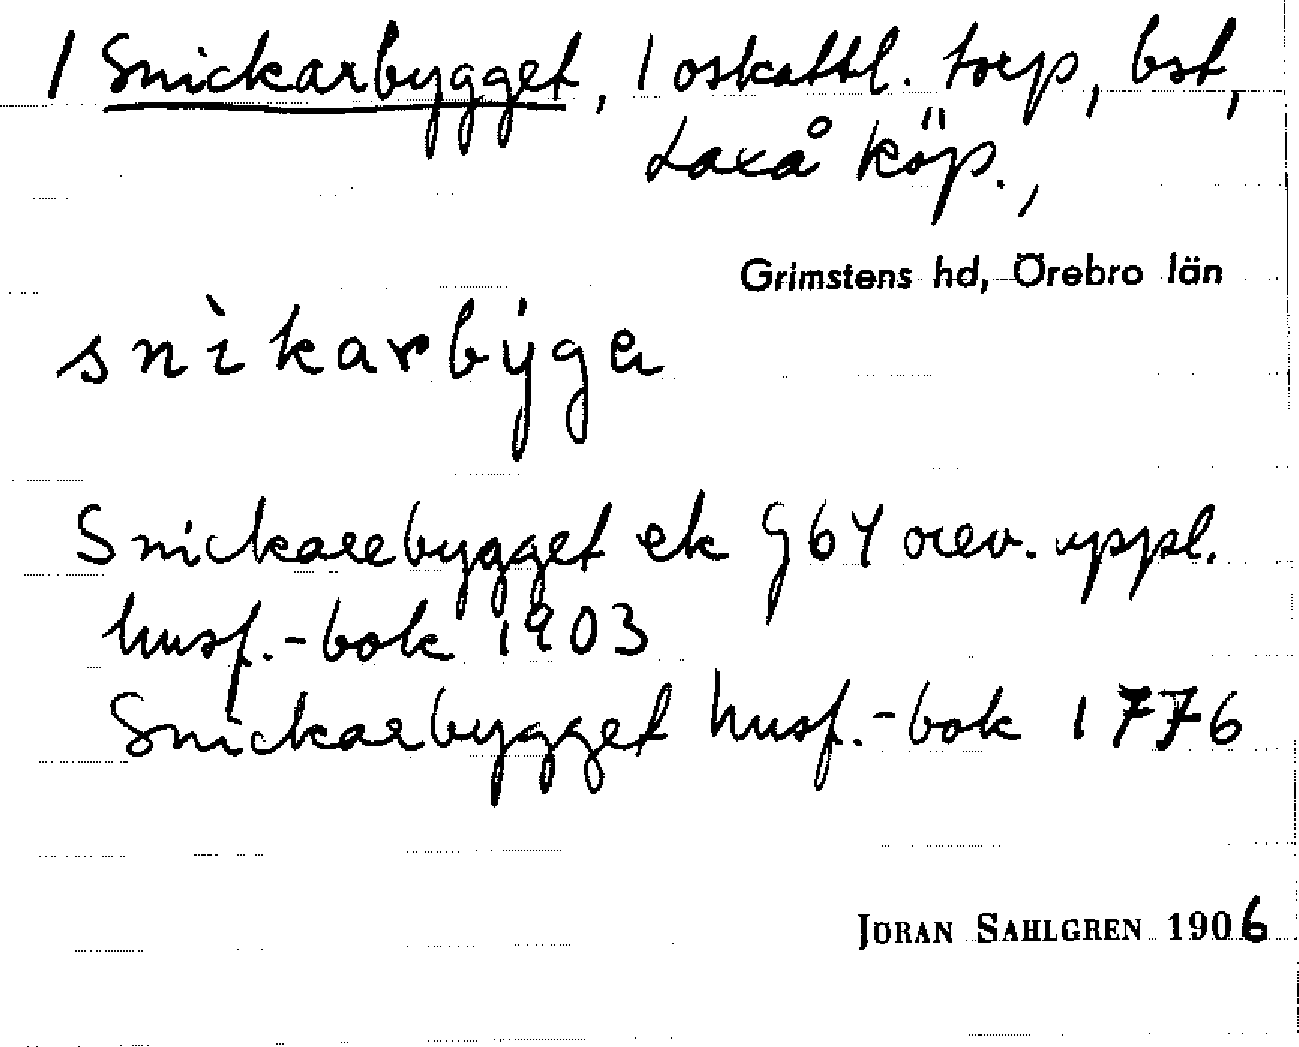 1 Snickarbygget, 1 oskattl. torp, bst,
Laxå köp.,
Grimstens hd, Örebro län
snìkarbýga
Snickarebygget ek G64 orev. uppl.
husf.-bok 1903
Snickarbygget husf.-bok 1776
JÖRAN SAHLGREN 1906